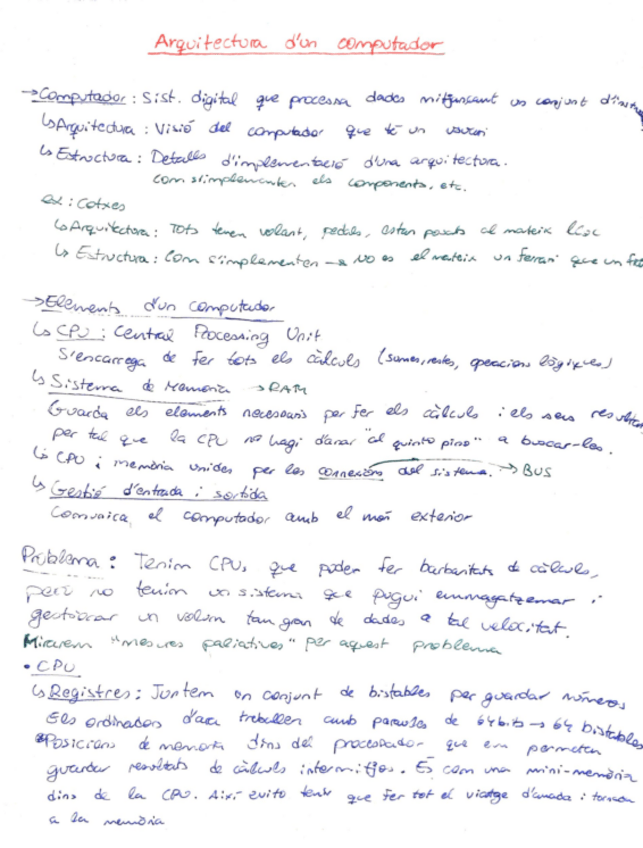 Arquitectura d'un computador
→Computador: Sist. digital que processa dades mitjançant un conjunt
↳Arquitectura: Visió del computador que té un usuari
↳Estructura: Detalls d'implementació d'una arquitectura.
com s'implementen els components, etc.
ex: Cotxes
↳Arquitectura: Tots tenen volant, pedals, estan posats al mateix lloc
↳Estructura: Com s'implementen → NO és el mateix un ferrari que un
→Elements d'un computador
↳CPU: Central Processing Unit
S'encarrega de fer tots els càlculs (sumes, restes, operacions lògiques)
↳Sistema de Memòria →RAM
Guarda els elements necessaris per fer els càlculs i els seus
per tal que la CPU no hagi d'anar "al quinto pino" a buscar-los.
↳CPU i memòria unides per les connexions del sistema. → BUS
↳Gestió d'entrada i sortida
Comunica el computador amb el mon exterior
Problema: Tenim CPUs que poden fer barbaritats de càlculs,
però no tenim un sistema que pugui emmagatzemar i
gestionar un volum tan gran de dades a tal velocitat.
Mirarem "mesures paliatives" per aquest problema
• CPU
↳Registres: Juntem un conjunt de bistables per guardar números
Els ordinadors d'ara treballen amb paraules de 64bits → 64 bistables
Posicions de memòria dins del processador que em permeten
guardar resultats de càlculs intermitjos. És com una mini-memòria
dins de la CPU. Així evito tenir que fer tot el viatge d'anada i tornada
a la memòria